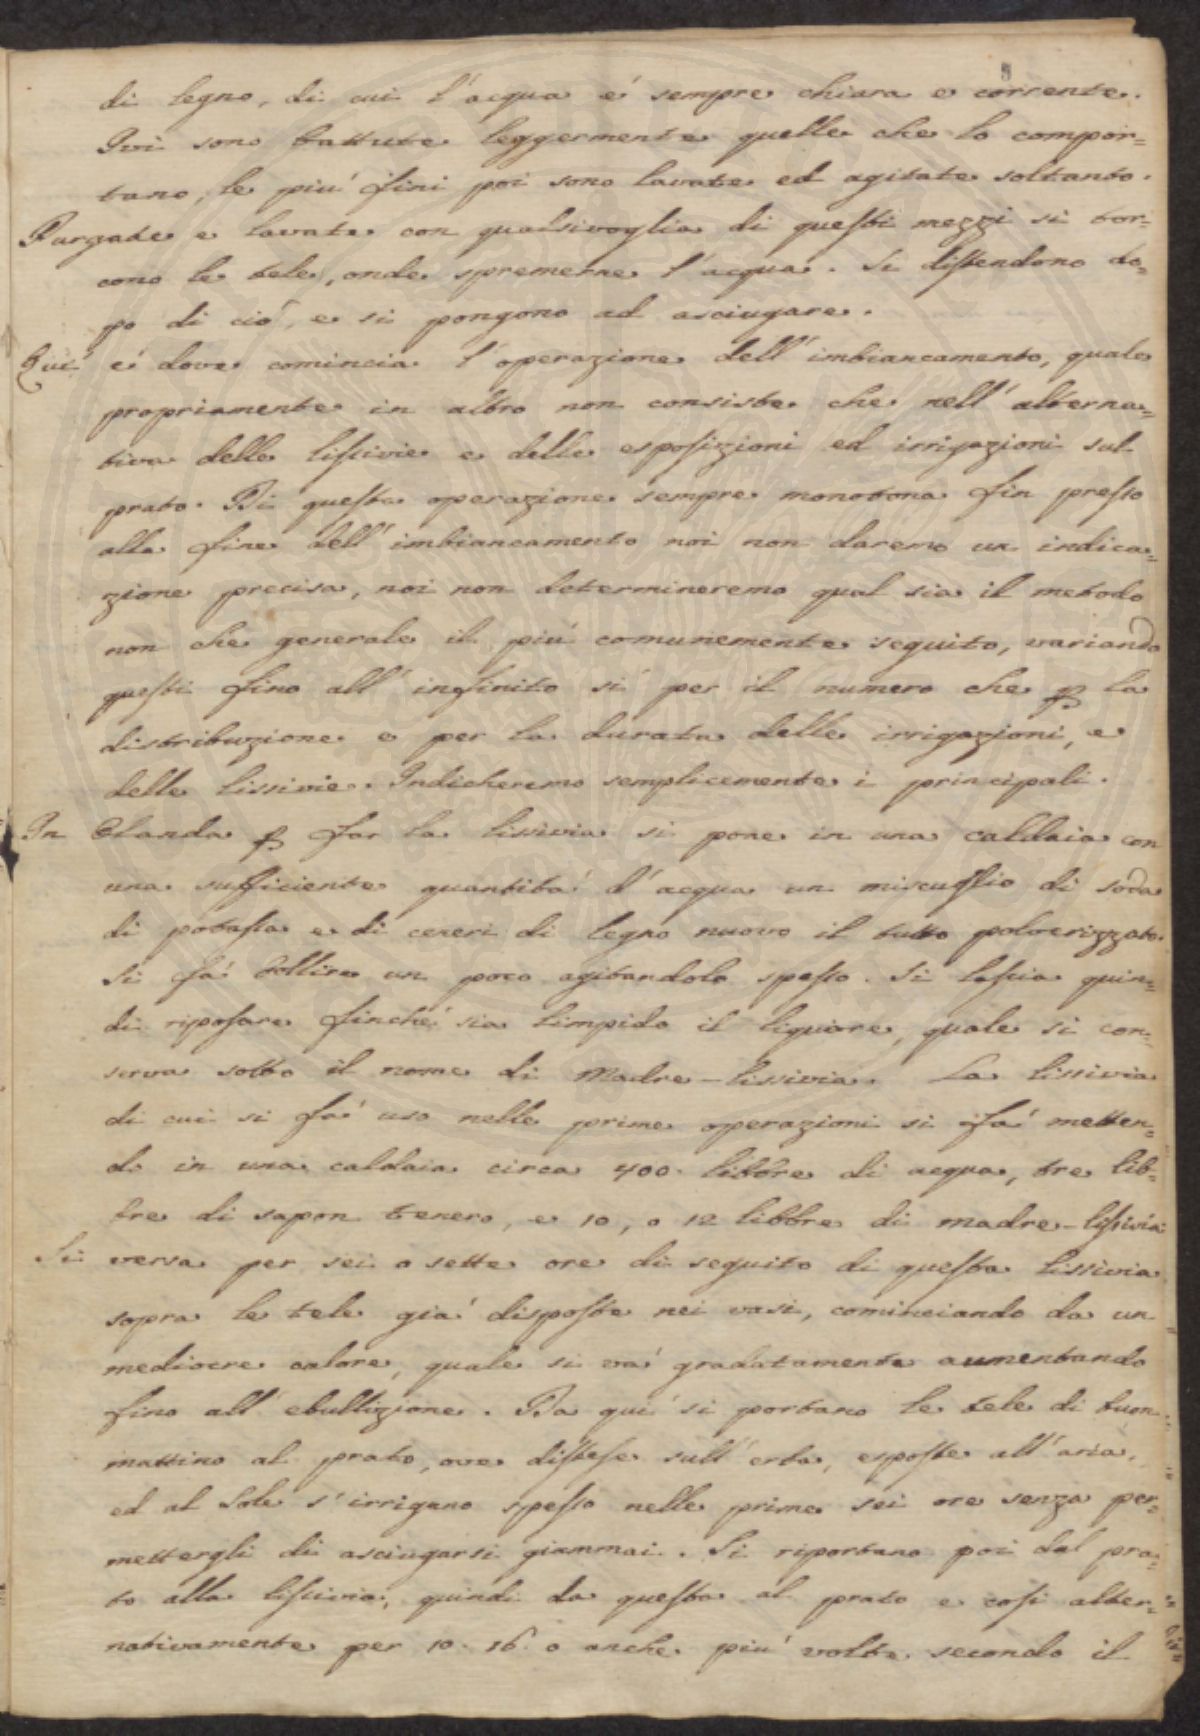 di legno, di cui l'acqua é sempre chiara e corrente.
Ivi sono battute leggermente quelle che lo compor=
tano, le piú fini poi sono lavate ed agitate soltanto.
Purgate e lavate con qualsivoglia di queſti mezzi si tor=
cono le tele, onde spremerne l'acqua. Si diſtendono do=
po di ció, e si pongono ad asciugare.
Qui é dove comincia l'operazione dell'imbiancamento, quale
propriamente in altro non consiste che nell'alterna=
tiva delle liſcivie e delle espoſizioni ed irrigazioni sul
prato. Di queſta operazione sempre monotona fin preſso
alla fine dell'imbiancamento noi non daremo un indica=
zione precisa, noi non determineremo qual sia il metodo
non che generale il piú comunemente seguito, variando
queſti fino all'infinito sí per il numero che ꝑ la
distribuzione e per la durata delle irrigazioni, e
delle lissivie. Indicheremo semplicemente i principali.
In Olanda ꝑ far la lissivia si pone in una caldaia con
una sufficiente quantitá d'acqua un miscuglio di soda
di potaſsa e di ceneri di legno nuovo il tutto polverizzato.
Si fá bollire un poco agitandolo speſso. Si laſcia quin=
di ripoſare finché sia limpido il liquore, quale si con=
serva sotto il nome di Madre-lissivia. La lissivia
di cui si fá uso nelle prime operazioni si fá metten=
do in una caldaia circa 400 libbre di acqua, tre lib=
bre di sapon tenero, e 10, o 12 libbre di madre-liſsivia
Si versa per sei o sette ore di seguito di queſta lissivia
sopra le tele giá dispoſte nei vasi, cominciando da un
mediocre calore, quale si vá gradatamente aumentando
fino all'ebullizione. Da qui si portano le tele di buon
mattino al prato, ove diſteſe sull'erba, espoſte all'aria,
ed al Sole s'irrigano speſso nelle prime sei ore senza per=
mettergli di asciugarsi giammai. Si riportano poi dal pra=
to alla liſcivia, quindi da queſta al prato e coſi alter=
nativamente per 10. 16. o anche piú volte secondo il